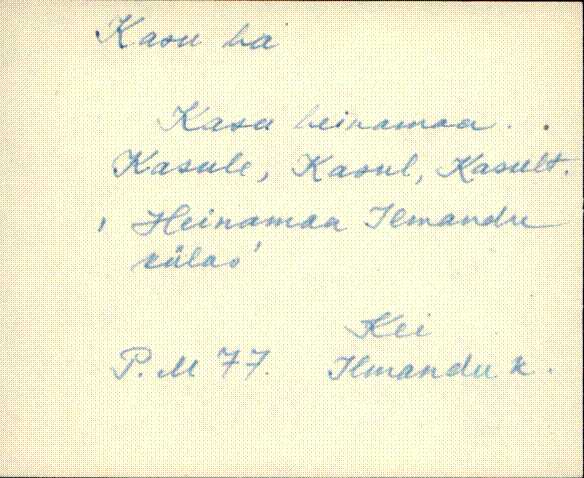 Kasu ha
Kasu heinamaa . .
Kasule, Kasul, Kasult.
' Heinamaa Ilmandu
külas '
Kei
P. M 77. Ilmandu k.